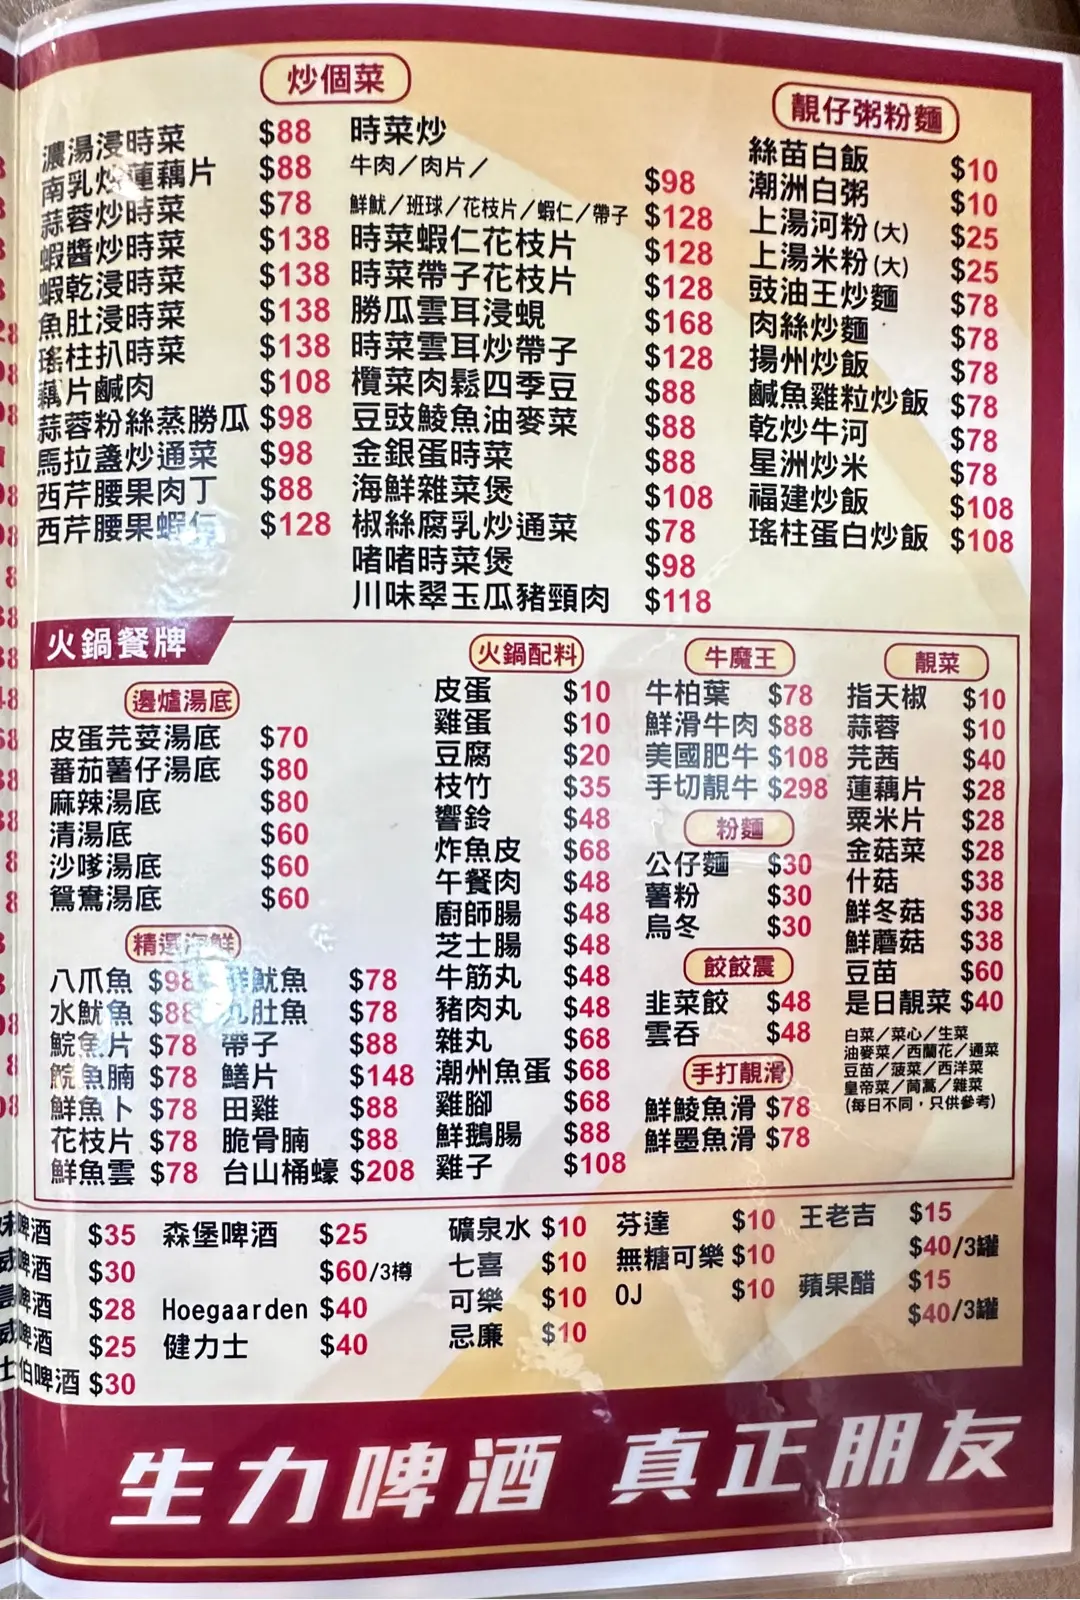 炒個菜
濃湯浸時菜 $88
南乳炒蓮藕片 $88
蒜蓉炒時菜 $78
蝦醬炒時菜 $138
蝦乾浸時菜 $138
魚肚浸時菜 $138
瑤柱扒時菜 $138
藕片鹹肉 $108
蒜蓉粉絲蒸勝瓜 $98
馬拉盞炒通菜 $98
西芹腰果肉丁 $88
西芹腰果蝦仁 $128
時菜炒
牛肉/肉片/ $98
鮮魷/班球/花枝片/蝦仁/帶子 $128
時菜蝦仁花枝片 $128
時菜帶子花枝片 $128
勝瓜雲耳浸蜆 $168
時菜雲耳炒帶子 $128
欖菜肉鬆四季豆 $88
豆豉鯪魚油麥菜 $88
金銀蛋時菜 $88
海鮮雜菜煲 $108
椒絲腐乳炒通菜 $78
啫啫時菜煲 $98
川味翠玉瓜豬頸肉 $118
靚仔粥粉麵
絲苗白飯 $10
潮洲白粥 $10
上湯河粉(大) $25
上湯米粉(大) $25
豉油王炒麵 $78
肉絲炒麵 $78
揚州炒飯 $78
鹹魚雞粒炒飯 $78
乾炒牛河 $78
星洲炒米 $78
福建炒飯 $108
瑤柱蛋白炒飯 $108
火鍋餐牌
邊爐湯底
皮蛋芫荽湯底 $70
蕃茄薯仔湯底 $80
麻辣湯底 $80
清湯底 $60
沙嗲湯底 $60
鴛鴦湯底 $60
精選海鮮
八爪魚 $98
水魷魚 $88
鯇魚片 $78
鯇魚腩 $78
鮮魚卜 $78
花枝片 $78
鮮魚雲 $78
鮮魷魚 $78
肚魚 $78
帶子 $88
鱔片 $148
田雞 $88
脆骨腩 $88
台山桶蠔 $208
火鍋配料
皮蛋 $10
雞蛋 $10
豆腐 $20
枝竹 $35
響鈴 $48
炸魚皮 $68
午餐肉 $48
廚師腸 $48
芝士腸 $48
牛筋丸 $48
豬肉丸 $48
雜丸 $68
潮州魚蛋 $68
雞腳 $68
鮮鵝腸 $88
雞子 $108
牛魔王
牛柏葉 $78
鮮滑牛肉 $88
美國肥牛 $108
手切靚牛 $298
粉麵
公仔麵 $30
薯粉 $30
烏冬 $30
餃餃震
韭菜餃 $48
雲吞 $48
手打靚滑
鮮鯪魚滑 $78
鮮墨魚滑 $78
靚菜
指天椒 $10
蒜蓉 $10
芫茜 $40
蓮藕片 $28
粟米片 $28
金菇菜 $28
什菇 $38
鮮冬菇 $38
鮮蘑菇 $38
豆苗 $60
是日靚菜 $40
白菜/菜心/生菜
油麥菜/西蘭花/通菜
豆苗/菠菜/西洋菜
皇帝菜/茼蒿/雜菜
(每日不同，只供參考)
啤酒 $35
啤酒 $30
啤酒 $28
啤酒 $25
伯啤酒 $30
森堡啤酒 $25
$60/3樽
Hoegaarden $40
健力士 $40
礦泉水 $10
七喜 $10
可樂 $10
忌廉 $10
芬達 $10
無糖可樂 $10
OJ $10
王老吉 $15
$40/3罐
蘋果醋 $15
$40/3罐
生力啤酒 真正朋友